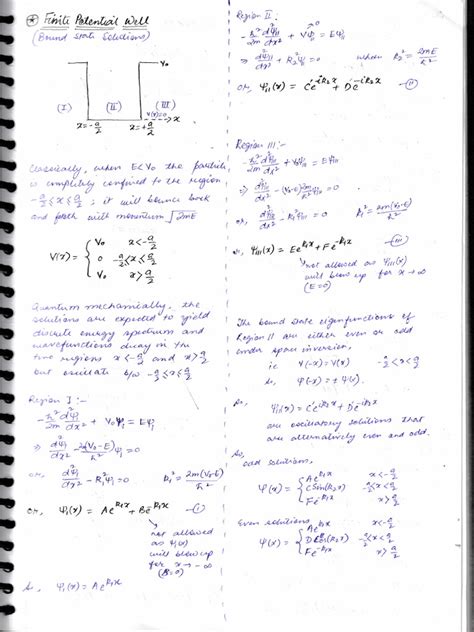 * Finite Potential Well
(Bound State Solutions)
V₀
(I) (II) (III)
V(x)=0
x=-a/2 x=+a/2 → x
Classically, when E<V₀ the particle
is completely confined to the region
-a/2 ≤ x ≤ a/2 ; it will bounce back
and forth with momentum √2mE
V(x) = { V₀ x<-a/2
0 -a/2<x<a/2
V₀ x>a/2
Quantum mechanically, the
solutions are expected to yield
discrete energy spectrum and
wavefunctions decay in the
two regions x<-a/2 and x>a/2
but oscillate b/w -a/2<x<a/2
Region I :-
-ħ²/2m d²ψ_I/dx² + V₀ψ_I = Eψ_I
⇒ d²ψ_I/dx² - 2(V₀-E)/ħ² ψ_I = 0
or, d²ψ_I/dx² - R₁²ψ_I = 0 R₁² = 2m(V₀-E)/ħ²
or, ψ_I(x) = Ae^{R₁x} + Be^{-R₁x} —(i)
not allowed
as ψ_I(x)
will blow up
for x→-∞
(B=0)
ψ_I(x) = Ae^{R₁x}
Region II :
-ħ²/2m d²ψ_II/dx² + Vψ_II = Eψ_II
0
⇒ d²ψ_II/dx² + R₂²ψ_II = 0 where R₂² = 2mE/ħ²
or, ψ_II(x) = C'e^{iR₂x} + D'e^{-iR₂x} —(ii)
Region III :-
-ħ²/2m d²ψ_III/dx² + V₀ψ_III = Eψ_III
⇒ d²ψ_III/dx² - (V₀-E)2m/ħ² ψ_III = 0
or, d²ψ_III/dx² - R₁²ψ_III = 0 R₁² = 2m(V₀-E)/ħ²
ψ_III(x) = Ee^{R₁x} + Fe^{-R₁x} —(iii)
not allowed as ψ_III(x)
will blow up for x→∞
(E=0)
The bound state eigenfunctions of
Region II are either even or odd
under space inversion,
ie V(-x) = V(x) -a/2<x<a/2
ψ(-x) = ± ψ(x).
ψ_II(x) = C'e^{iR₂x} + D'e^{-iR₂x}
are oscillatory solutions that
are alternatively even and odd.
odd solutions,
ψ(x) = { Ae^{R₁x} x<-a/2
C sin(R₂x) -a/2<x<a/2
Fe^{-R₁x} x>a/2
Even solutions,
ψ(x) = { Ae^{R₁x} x<-a/2
D cos(R₂x) -a/2<x<a/2
Fe^{-R₁x} x>a/2